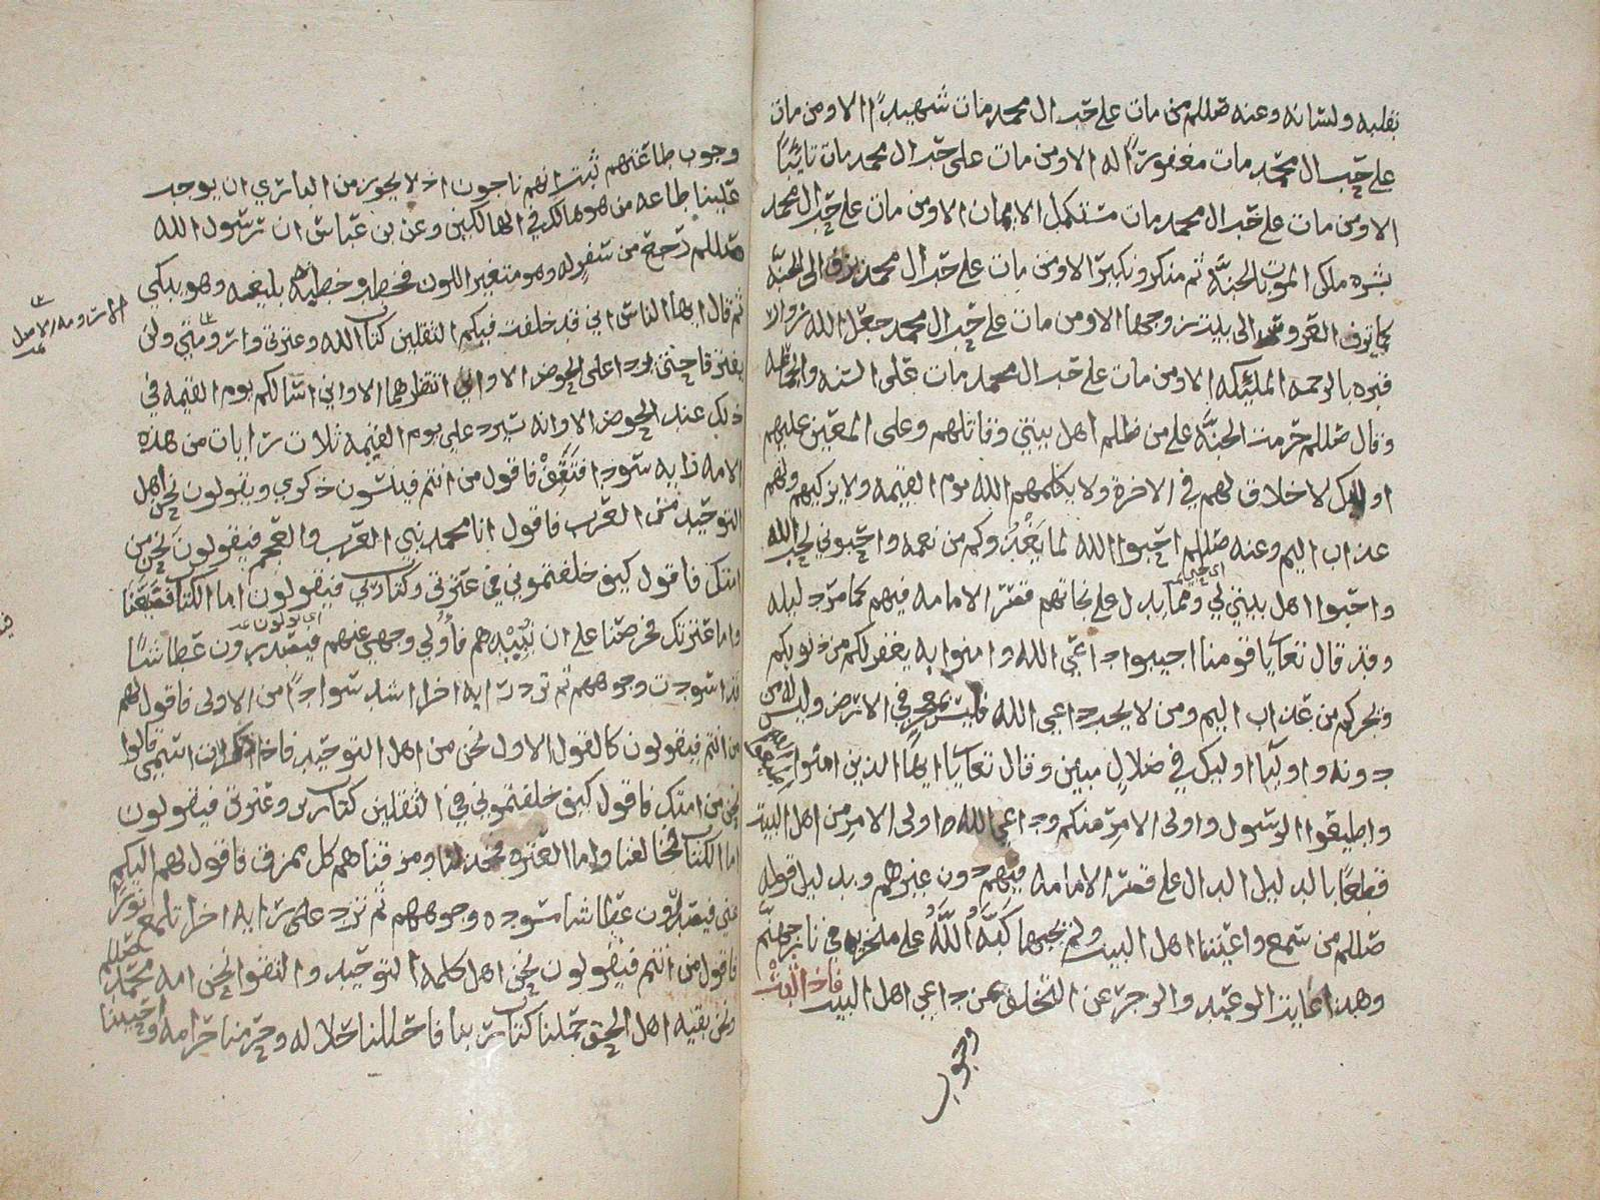 بقلبه ولسانه وعنه صللم من مات على حب ال محمد مات شهيدًا الا ومن مات
على حب ال محمد مات مغفورًا له الا ومن مات على حب ال محمد مات تائبًا
الا ومن مات على حب ال محمد مات مستكمل الايمان الا ومن مات على حب ال محمد
بشره ملك الموت بالجنة ثم منكر ونكير الا ومن مات على حب ال محمد يزف الى الجنة
كما تزف العروس الى بيت زوجها الا ومن مات على حب ال محمد جعل الله زوار
قبره بالرحمه الملئكه الا ومن مات على حب ال محمد مات على السنه والجماعه
وقال صللم حرمت الجنة على من ظلم اهل بيتي وقاتلهم وعلى المعين عليهم
اولئك لا خلاق لهم في الاخرة ولا يكلمهم الله يوم القيمه ولا يزكيهم ولهم
عذاب اليم وعنه صللم احبوا الله لما يغذوكم من نعمه واحبوني لحب الله
واحبوا اهل بيتي لي ومما يدل على نجاتهم قصر الامامه فيهم كما مر دليله
وقد قال تعا يا قومنا اجيبوا داعي الله وامنوا به يغفر لكم من ذنوبكم
ويجركم من عذاب اليم ومن لا يجب داعي الله فليس بمعجز في الارض وليس له من
دونه اوليا اوليك في ضلال مبين وقال تعا يا ايها الذين امنوا اطيعوا الله
واطيعوا الرسول واولى الامر منكم وداعي الله واولى الامر من اهل البيت
قطعًا بالدليل الدال على قصر الامامه فيهم دون غيرهم وبدليل قوله
صللم من سمع واعيتنا اهل البيت ولم يجبها كبه الله على منخريه في نار جهنم
وهذا غاية الوعيد والزجر عن التخلف عن داعي اهل البيت فاذا ثبت
وجوب
وجوب طاعتهم ثبت انهم ناجون اذ لا يجوز من الباري ان يوجب
علينا طاعه من هو هالك في الهالكين وعن بن عباس ان رسول الله
صللم رجع من سفر له وهو متغير اللون فخطب خطبه بليغه وهو يبكي
ثم قال ايها الناس اني قد خلفت فيكم الثقلين كتاب الله وعترتي وارومتي ولن
يفترقا حتى يردا على الحوض الا واني انتظرهما الا واني اسالكم يوم القيمه في
ذلك عند الحوض الا وانه سيرد علي يوم القيمه ثلاث رايات من هذه
الامه رايه سودا فتقف فاقول من انتم فينسون ذكري ويقولون نحن اهل
التوحيد من العرب فاقول انا محمد نبي العرب والعجم فيقولون نحن من
امتك فاقول كيف خلفتموني في عترتي وكتاب ربي فيقولون اما الكتاب فضيعنا
واما عترتك فحرصنا على ان نبيدهم فأولي وجهي عنهم فيصدرون عطاشًا
قد اسودت وجوههم ثم ترد رايه اخرا اشد سوادًا من الاولى فاقول لهم
من انتم فيقولون كالقول الاول نحن من اهل التوحيد فاذا ذكرت اسمي قالوا
نحن من امتك فاقول كيف خلفتموني في الثقلين كتاب ربي وعترتي فيقولون
اما الكتاب فخالفنا واما العتره فخذلنا ومزقناهم كل ممزق فاقول لهم اليكم
عني فيصدرون عطاشا مسوده وجوههم ثم ترد علي رايه اخرا تلمع نورًا
فاقول من انتم فيقولون نحن اهل كلمه التوحيد والتقوا نحن امه محمد صللم
ونحن بقيه اهل الحق حملنا كتاب ربنا فاحللنا حلاله وحرمنا حرامه واحببنا